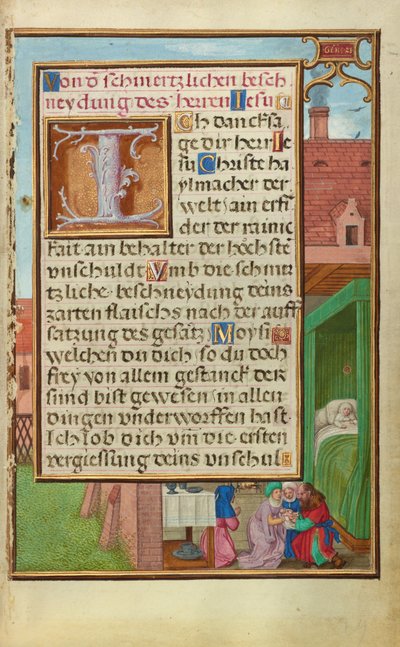 Genes 21
Von d̄ schmertzlichen besch
neydung des herren Iesu
Ich dancksa
ge dir herr Ie
su Christe ha
ylmacher der
welt / ain erff
der der rainic
kait ain behalter der höchstē
vnschuldt Vmb die schmer
tzliche beschneydung deins
zarten flaischs nach der auff
satzung des gesatz Moysi
welchen du dich / so du doch
frey von allem gestanck der
sünd bist gewesen / in allen
dingen vnderworffen hast.
Ich lob dich vm̄ die ersten
vergiessung deins vnschul